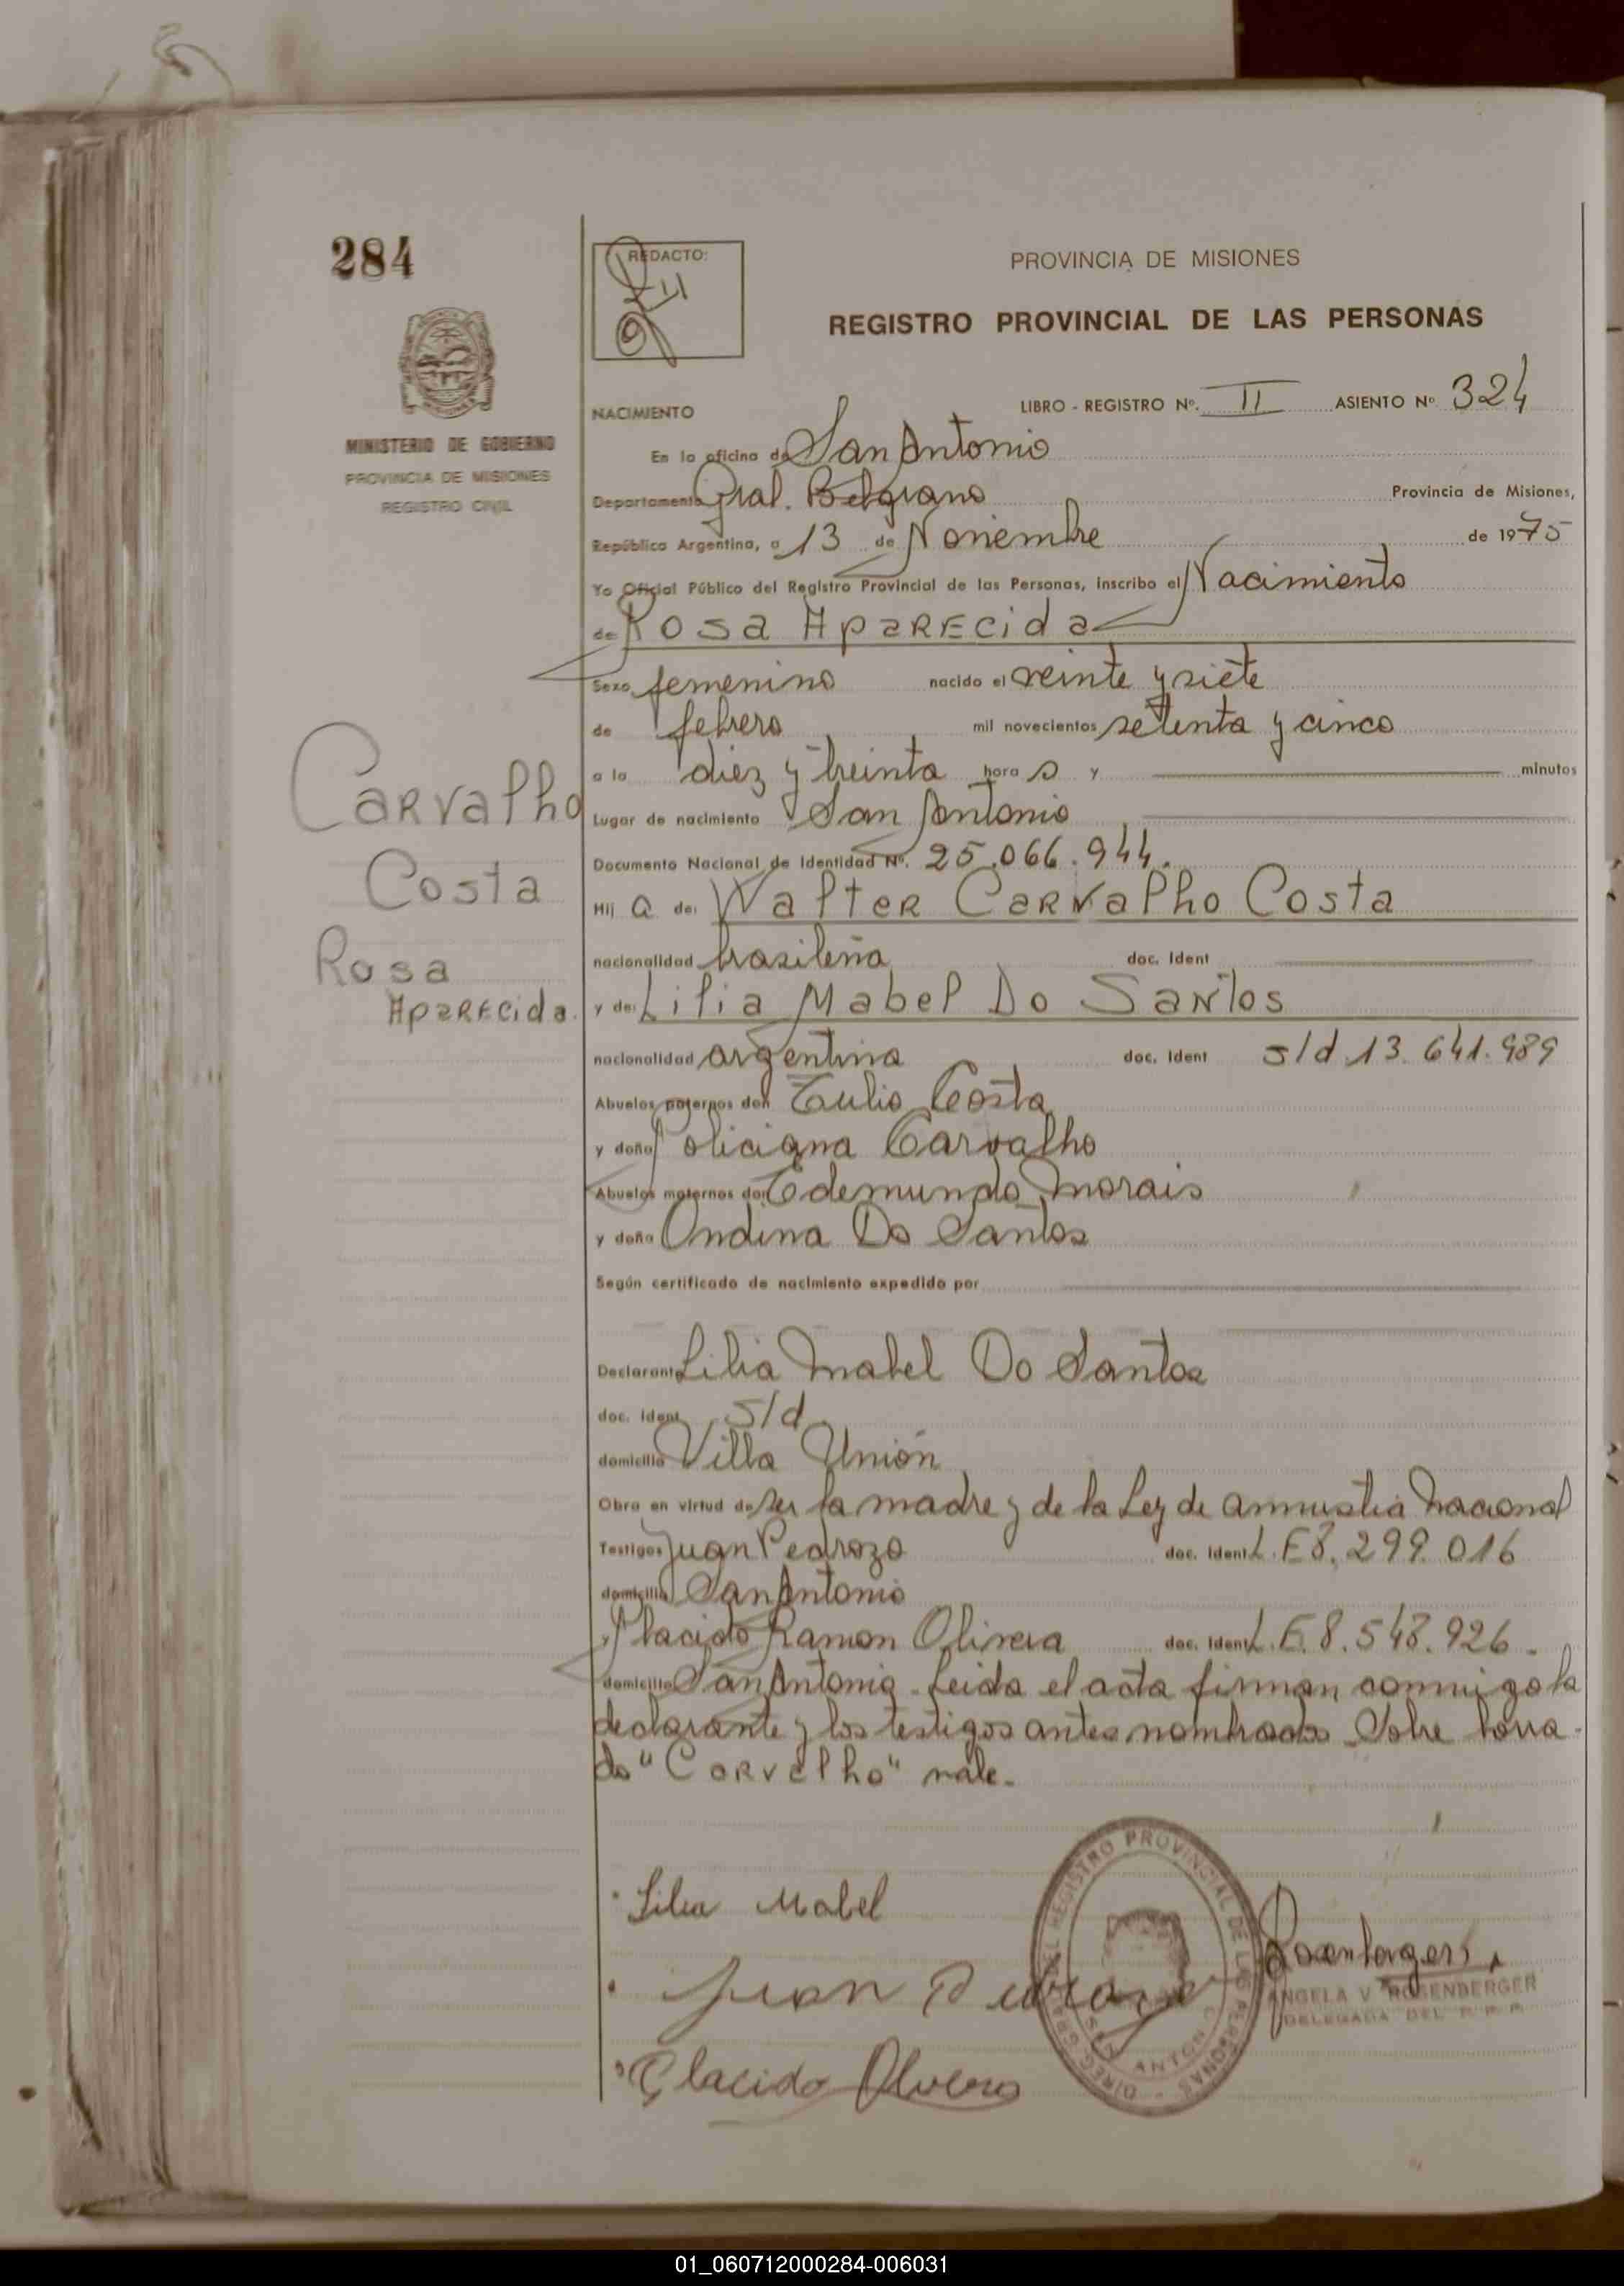 284
MINISTERIO DE GOBIERNO
PROVINCIA DE MISIONES
REGISTRO CIVIL
REDACTO:
PROVINCIA DE MISIONES
REGISTRO PROVINCIAL DE LAS PERSONAS
NACIMIENTO LIBRO - REGISTRO Nº. II ASIENTO Nº 324
En la oficina de San Antonio
Departamento Gral. Belgrano Provincia de Misiones,
República Argentina, a 13 de Noviembre de 1975
Yo Oficial Público del Registro Provincial de las Personas, inscribo el Nacimiento
de Rosa Aparecida
Sexo femenino nacido el veinte y siete
de febrero mil novecientos setenta y cinco
a la diez y treinta hora s y minutos
Lugar de nacimiento San Antonio
Documento Nacional de Identidad Nº. 25.066.944.
Hij a de: Walter Carvalho Costa
nacionalidad brasileña doc. Ident
y de: Lilia Mabel Do Santos
nacionalidad argentina doc. Ident s/d 13.641.989
Abuelos paternos don Tulio Costa
y doña Policiana Carvalho
Abuelos maternos don Edemundo Morais
y doña Ondina Do Santos
Según certificado de nacimiento expedido por
Declarante Lilia Mabel Do Santos
doc. Ident s/d
domicilio Villa Unión
Obra en virtud de ser la madre y de la Ley de amnistia Nacional
Testigos Juan Pedrozo doc. Ident L.E 8.299.016
domicilio San Antonio
Placido Ramon Olivera doc. Ident L.E. 8.548.926.
domicilio San Antonio. Leida el acta firman conmigo la
declarante y los testigos antes nombrados. Sobre borra-
do "Carvalho" vale.
Carvalho
Costa
Rosa
Aparecida.
Lilia Mabel
Juan Pedrozo
Placido Olivera
Rosenberger
ANGELA V. ROSENBERGER
DELEGADA DEL R. P. P.
DIREC. GRAL. DEL REGISTRO PROVINCIAL DE LAS PERSONAS
SAN ANTONIO
01_060712000284-006031